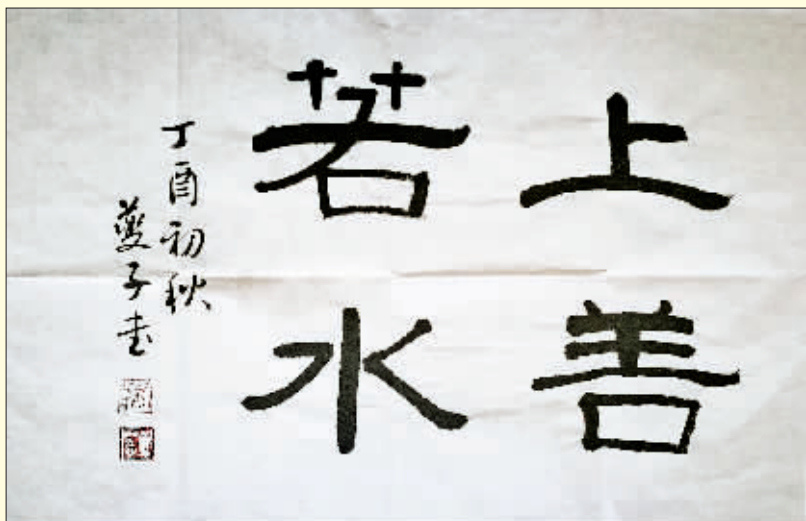 上善
若水
丁酉初秋
蘷子书